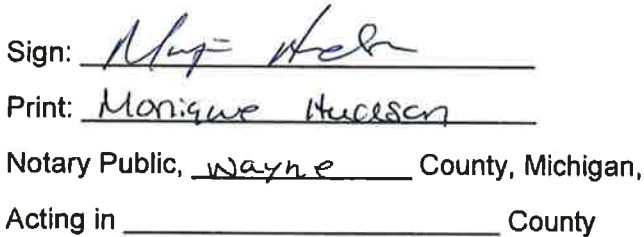 Sign:
Print: Monique Hudson
Notary Public, Wayne County, Michigan,
Acting in County